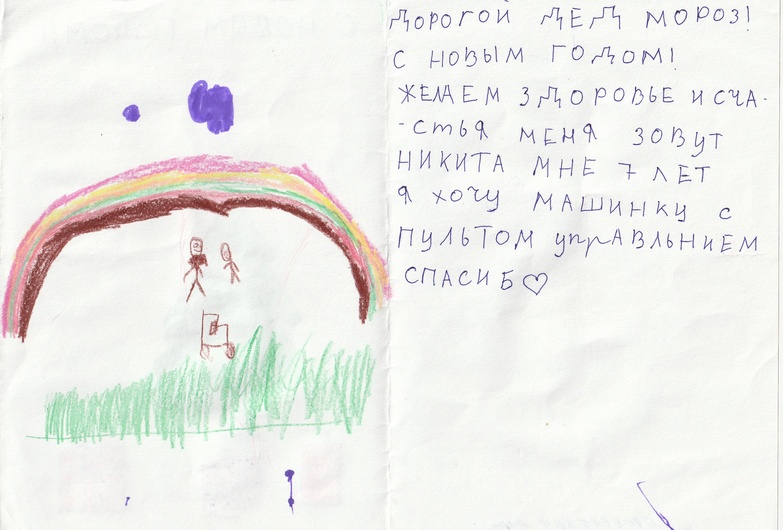 ДОРОГОЙ ДЕД МОРОЗ!
С НОВЫМ ГОДОМ!
ЖЕЛАЕМ ЗДОРОВЬЕ И СЧА-
-СТЬЯ МЕНЯ ЗОВУТ
НИКИТА МНЕ 7 ЛЕТ
Я ХОЧУ МАШИНКУ С
ПУЛЬТОМ упрАВЛЬНИЕМ
СПАСИБ♡